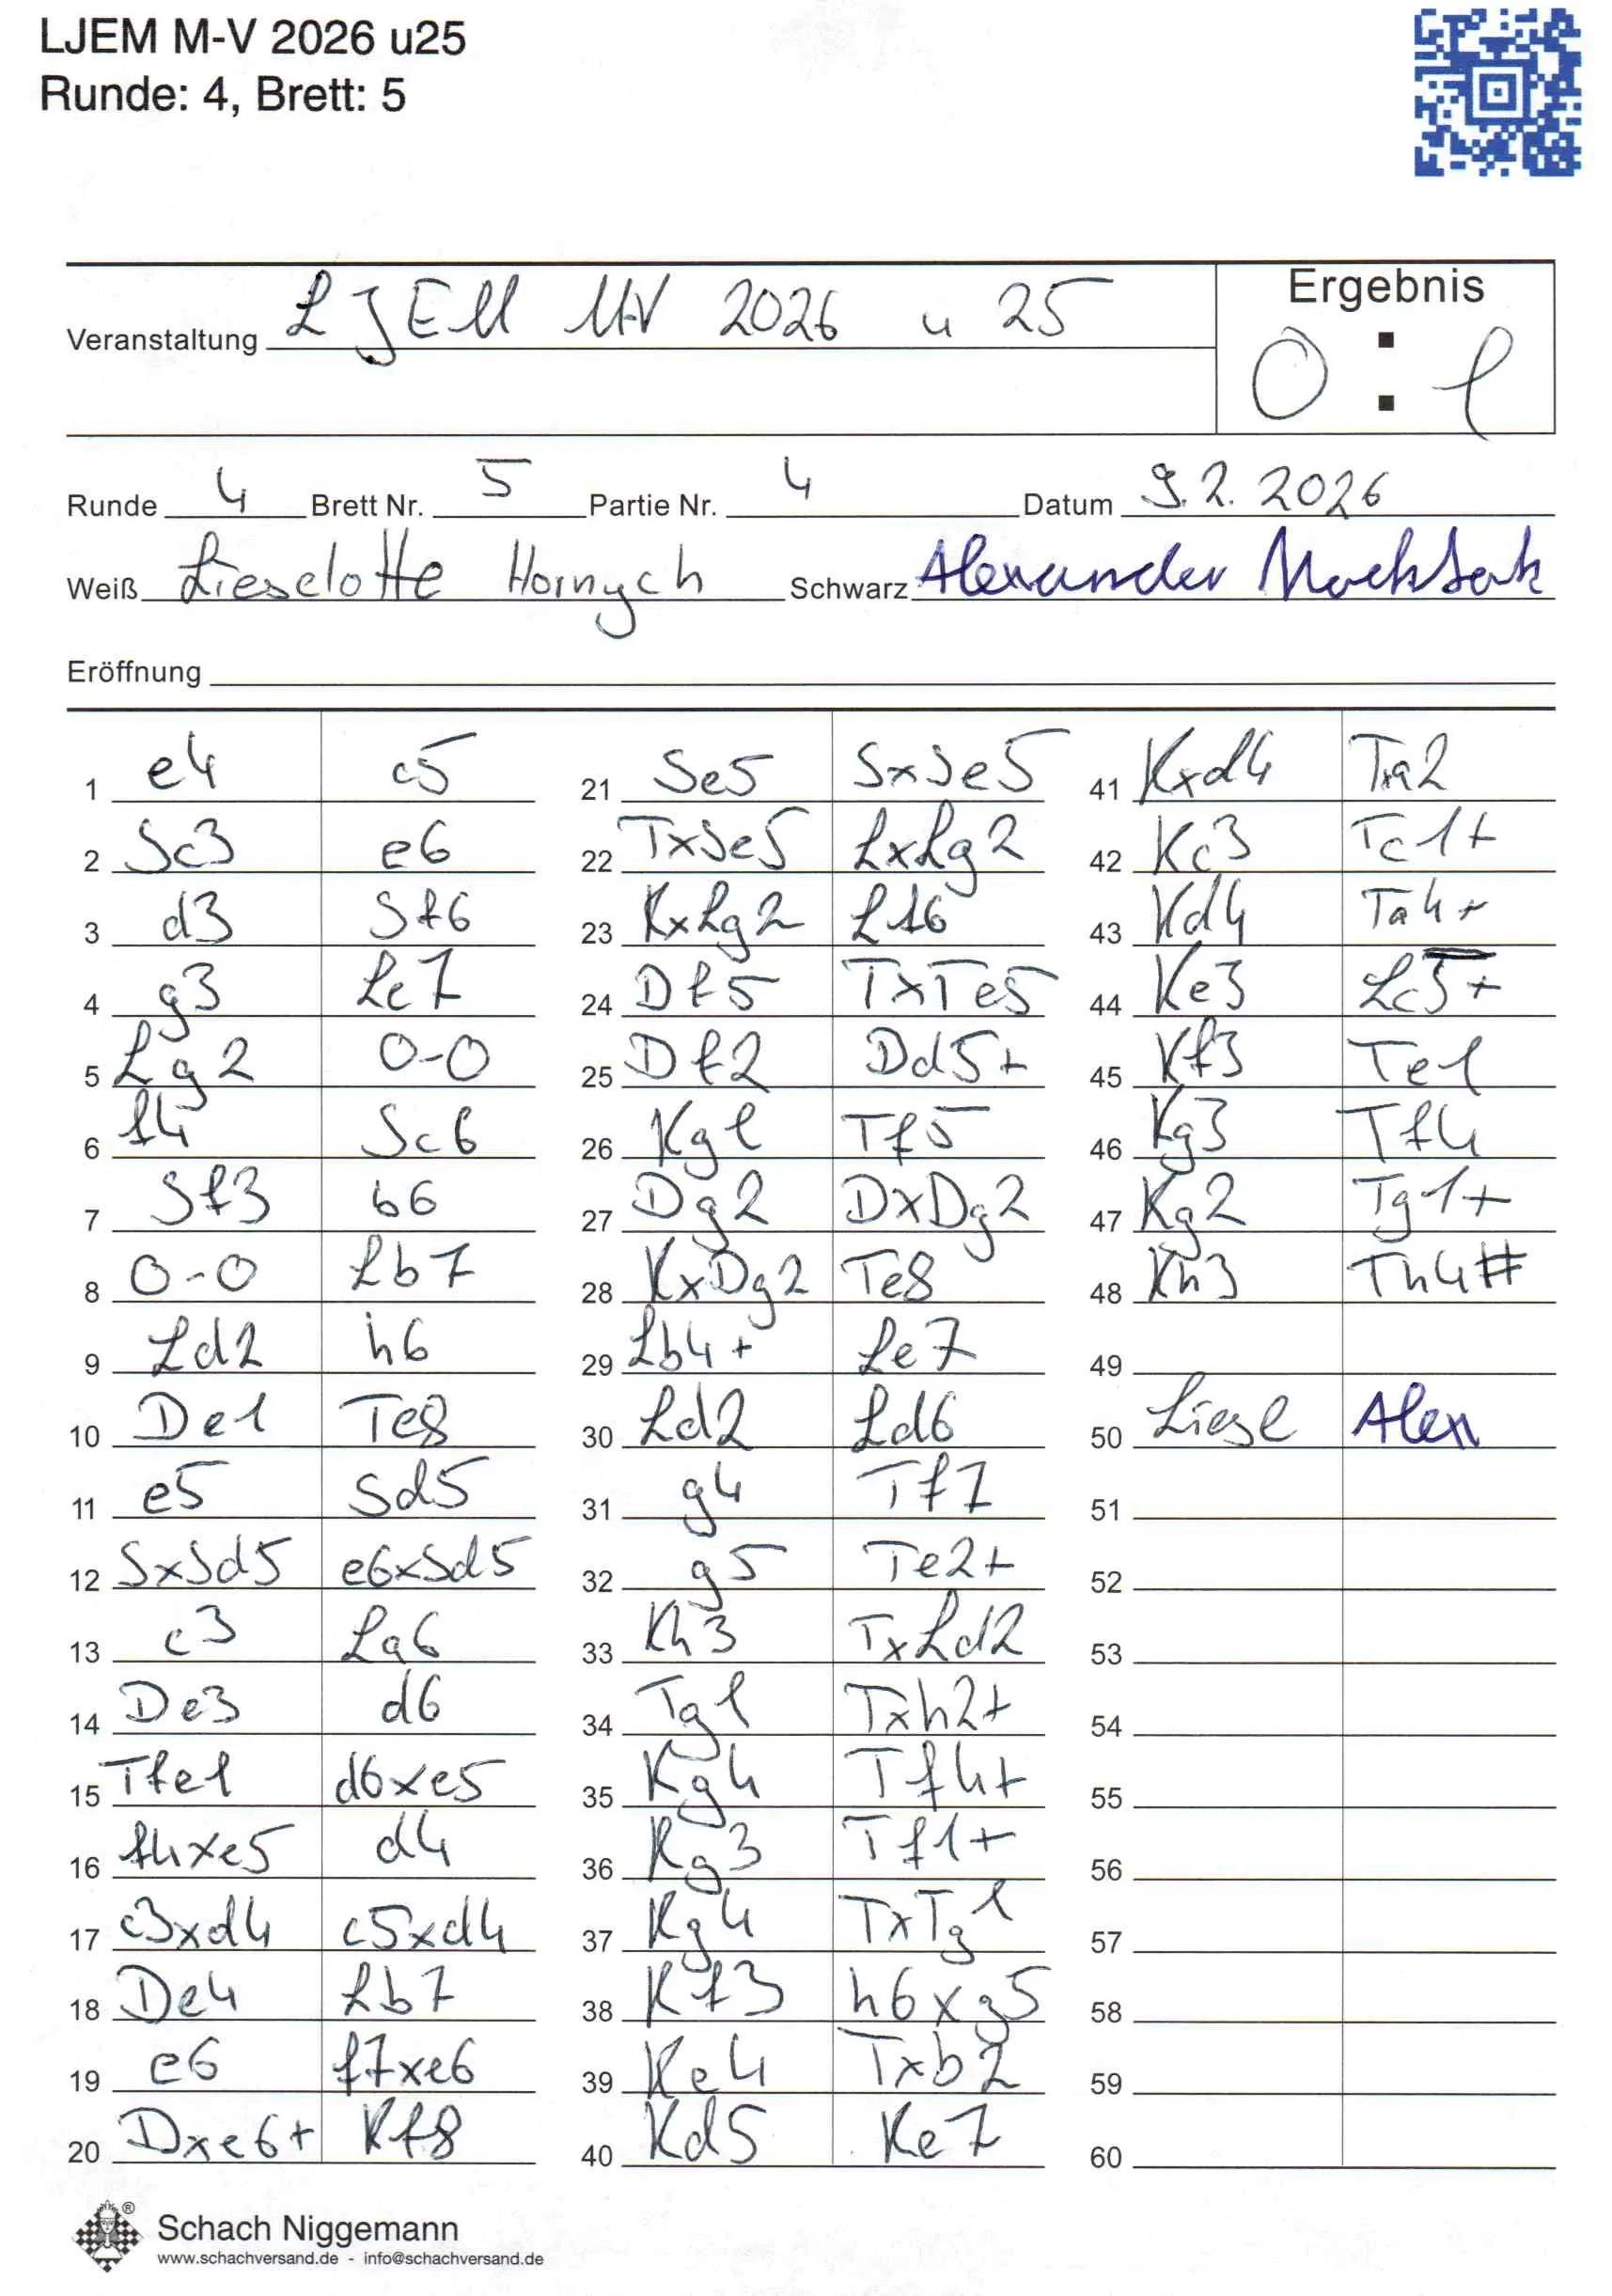 LJEM M-V 2026 u25
Runde: 4, Brett: 5
Veranstaltung LJEM MV 2026 u 25
Ergebnis
0 : 1
Runde 4 Brett Nr. 5 Partie Nr. 4 Datum 9.2.2026
Weiß Lieselotte Hornych Schwarz Alexander
Eröffnung
1 e4 c5 21 Se5 SxSe5 41 Kxd4 Txa2
2 Sc3 e6 22 TxSe5 LxLg2 42 Kc3 Tc1+
3 d3 Sf6 23 KxLg2 Lf6 43 Kd4 Ta4+
4 g3 Le7 24 Df5 TxTe5 44 Ke3 Lc5+
5 Lg2 0-0 25 Df2 Dd5+ 45 Kf3 Te1
6 f4 Sc6 26 Kg1 Tf5 46 Kg3 Tf4
7 Sf3 b6 27 Dg2 DxDg2 47 Kg2 Tg1+
8 0-0 Lb7 28 KxDg2 Te8 48 Kh3 Th4#
9 Ld2 h6 29 Lb4+ Le7 49
10 De1 Te8 30 Ld2 Ld6 50 Liesl Alex
11 e5 Sd5 31 g4 Tf7 51
12 SxSd5 e6xSd5 32 g5 Te2+ 52
13 c3 La6 33 Kh3 TxLd2 53
14 De3 d6 34 Tg1 Txh2+ 54
15 Tfe1 d6xe5 35 Kg4 Tf4+ 55
16 f4xe5 d4 36 Kg3 Tf1+ 56
17 c3xd4 c5xd4 37 Kg4 TxTg1 57
18 De4 Lb7 38 Kf3 h6xg5 58
19 e6 f7xe6 39 Ke4 Txb2 59
20 Dxe6+ Kf8 40 Kd5 Ke7 60
®
Schach Niggemann
www.schachversand.de - info@schachversand.de